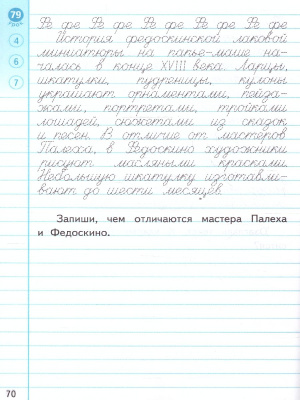 79
Фе фе Фе фе Фе фе Фе фе Фе фе
4
История федоскинской лаковой
миниатюры на папье-маше на-
6
чалась в конце XVIII века. Ларцы,
7
шкатулки, пудреницы, кулоны
украшают орнаментами, пейза-
жами, портретами, тройками
лошадей, сюжетами из сказок
и песен. В отличие от мастеров
Палеха, в Федоскино художники
рисуют масляными красками.
Небольшую шкатулку изготавли-
вают до шести месяцев.
Запиши, чем отличаются мастера Палеха
и Федоскино.
70